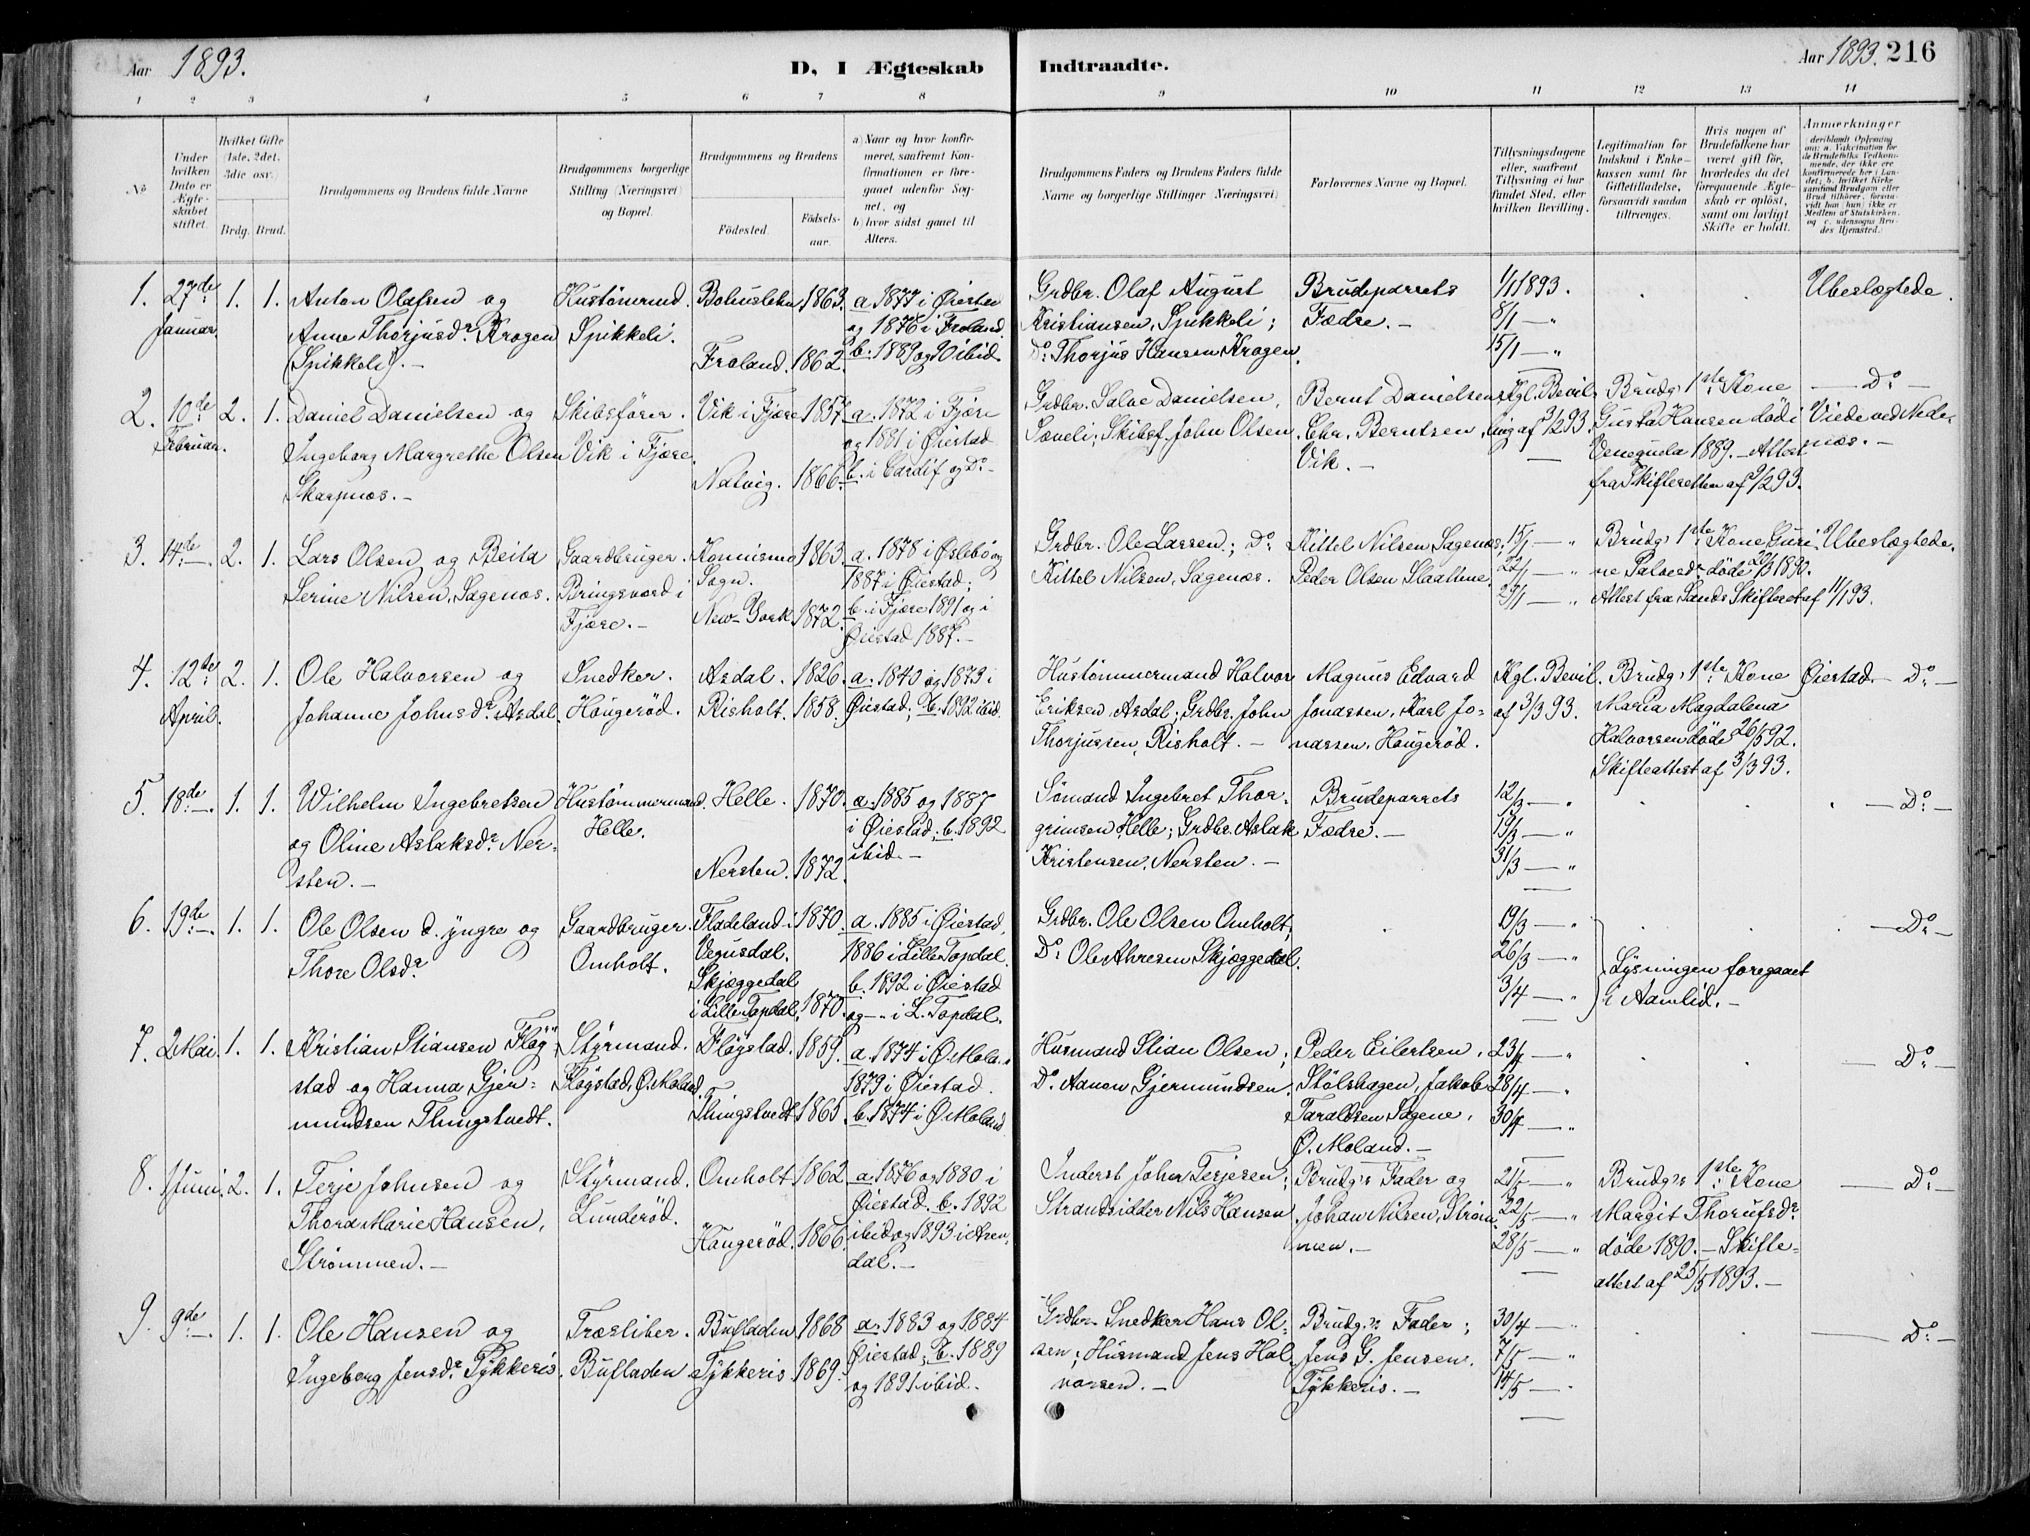 Aar 1893.
D, I Ægteskab Indtraadte.
Aar 1893. 216
1 2 3 4 5 6 7 8 9 10 11 12 13 14
No
Under hvilken Dato er Ægteskabet stiftet.
Hvilket Gifte (1ste, 2det, 3die osv.)
Brdg. Brud.
Brudgommens og Brudens fulde Navne
Brudgommens borgerlige Stilling (Næringsvei) og Bopæl.
Brudgommens og Brudens
Fødested. Fødselsaar.
a) Naar og hvor konfirmeret, saafremt Konfirmationen er foregaaet udenfor Sognet, og
b) hvor sidst gaaet til Alters.
Brudgommens Faders og Brudens Faders fulde Navne og borgerlige Stillinger (Næringsvei)
Forlovernes Navne og Bopæl.
Tillysningsdagene eller, saafremt Tillysning ei har fundet Sted, efter hvilken Bevilling.
Legitimation for Indskud i Enkekassen samt for Giftetilladelse, forsaavidt saadan tiltrænges.
Hvis nogen af Brudefolkene har været gift før, hvorledes da det foregaaende Ægteskab er opløst, samt om lovligt Skifte er holdt.
Anmærkninger (deriblandt Oplysning om: a. Vakcination for de Brudefolks Vedkommende, der ikke ere konfirmerede her i Landet; b. hvilket Kirkesamfund Brudgom eller Brud tilhører, forsaavidt han (hun) ikke er Medlem af Statskirken, og c. udensogns Brudes Hjemsted.)
1. 27de Januar. 1. 1.
Anton Olafsen og
Anne Thorjusdr. Krogen
(Spikkeli). —
Hustømmermd.
Spikkeli.
Bohuslehn 1863.
Froland. 1862.
a. 1877 i Øiestad
og 1876 i Froland.
b. 1889 og 90 ibid.
Grdbr. Olaf August
Kristiansen, Spikkeli;
Do. Thorjus Hansen Krogen.
Brudeparrets
Fædre. —
1/1 1893.
8/1 — "
15/1 — "
Ubeslægtede.
2. 10de Februar. 2. 1.
Daniel Danielsen og
Ingeborg Margrethe Olsen
Skarpnæs. —
Skibsfører.
Vik i Fjære.
Vik i Fjære 1857.
Natvig. 1866.
a. 1872 i Fjære
og 1881 i Øiestad
b. i Cardif og Do. —
Grdbr. Salve Danielsen,
Sæveli; Skibsf. John Olsen
Bernt Danielsen,
Chr. Berntsen,
Vik. —
Kgl. Bevilling af 3/2 93.
Brudg.s 1ste Kone
Gusta Hansen død i
Venezuela 1889. — Attest
fra Skifteretten af 9/2 93.
— Do. —
Viede ved Nedenæs. —
3. 14de —. 2. 1.
Lars Olsen og Beita
Serine Nilsen, Sagenæs.
Gaardbruger.
Bringsværd i
Fjære. —
Konnismo
Sogn. 1863.
New-York 1872.
a. 1878 i Øslebø og
1887 i Øiestad;
b. i Fjære 1891 og i
Øiestad 1887. —
Grdbr. Ole Larsen; Do.
Kittel Nilsen, Sagenæs.
Kittel Nilsen Sagenæs;
Peder Olsen Slaattene.
15/1 — "
22/1 — "
29/1 — "
Brudg.s 1ste Kone Gurine
Salvesdr. døde 22/3 1890.
Attest fra Sands Skifteret af 11/1 93.
Ubeslægtede.
4. 12te April. 2. 1.
Ole Halvorsen og
Johanne Johnsdr. Asdal.
Snedker.
Haugerød.
Asdal. 1826.
Risholt. 1858.
a. 1840 og 1873 i
Øiestad; b. 1892 ibid.
Hustømmermand Halvor
Eriksen Asdal; Grdbr. John
Thorjussen, Risholt. —
Magnus Edvard
Jonassen, Karl Jonassen, Haugerød.
Kgl. Bevil.
af 3/3 93.
Brudg.s 1ste Kone
Maria Magdalena
Halvorsen døde 26/5 92.
Skifteattest af 3/3 93.
Øiestad. — Do. —
5. 18de —. 1. 1.
Wilhelm Ingebretsen
og Oline Aslaksdr. Nersten. —
Hustømmermand.
Helle.
Helle. 1870.
Nersten. 1872.
a. 1885 og 1887
i Øiestad; b. 1892
ibid. —
Sømand Ingebret Thorgrimsen
Helle; Grdbr. Aslak
Kristensen, Nersten. —
Brudeparrets
Fædre. —
12/3 — "
19/3 — "
31/3 — "
— Do. —
6. 19de —. 1. 1.
Ole Olsen d. yngre og
Thore Olsdr.
Gaardbruger.
Omholt.
Fladeland i
Vegusdal. 1870.
Skjæggedal
i Lille Topdal, 1870.
a. 1885 i Øiestad,
1886 i Lille Topdal.
b. 1892 i Øiestad
og — " — i L. Topdal.
Grdbr. Ole Olsen Omholt;
Do. Ole Ahresen Skjæggedal.
19/3 — "
26/3 — "
3/4 — "
Lysningen foregaaet
i Aamlid. —
— Do. —
7. 2 Mai. 1. 1.
Kristian Stiansen Fløgstad
og Hanna Gjermundsen
Thingstvedt.
Styrmand.
Fløgstad, Ø. Moland.
Fløgstad. 1859.
Thingstvedt. 1865.
a. 1874 i Ø. Mol. &
1879 i Øiestad.
b. 1874 i Ø. Moland
Husmand Stian Olsen;
Do. Aanon Gjermundsen.
Peder Eilertsen,
Stølshagen, Jakob
Taraldsen Sagene,
Ø. Moland. —
23/4 — "
28/4 — "
30/4 — "
— Do. —
8. 1 Juni. 2. 1.
Terje Johnsen og
Thora Marie Hansen,
Strømmen. —
Styrmand.
Lunderød.
Omholt. 1862.
Haugerød. 1866.
a. 1876 og 1880 i
Øiestad. b. 1892
ibid og 1893 i Arendal. —
Inderst John Terjesen;
Strandsidder Nils Hansen
Brudg.s Fader og
Johan Nilsen, Strømmen. —
21/5 — "
22/5 — "
28/5 — "
Brudg.s 1ste Kone
Margit Thorufsdr.
døde 1890. — Skifteattest
af 25/5 1893. —
— Do. —
9. 9de —. 1. 1.
Ole Hansen og
Ingeborg Jensdr. Tykkeris.
Træsliber.
Bufladen
Bufladen 1868
Tykkeris 1869.
a. 1883 og 1884
Øiestad; b. 1889
og 1891 ibid.
Grdbr. Snedker Hans Olsen;
Husmand Jens Halvorsen. —
Brudg.s Fader;
Jens G. Jensen.
Tykkeris. —
30/4 — "
7/5 — "
14/5 — "
— Do. —